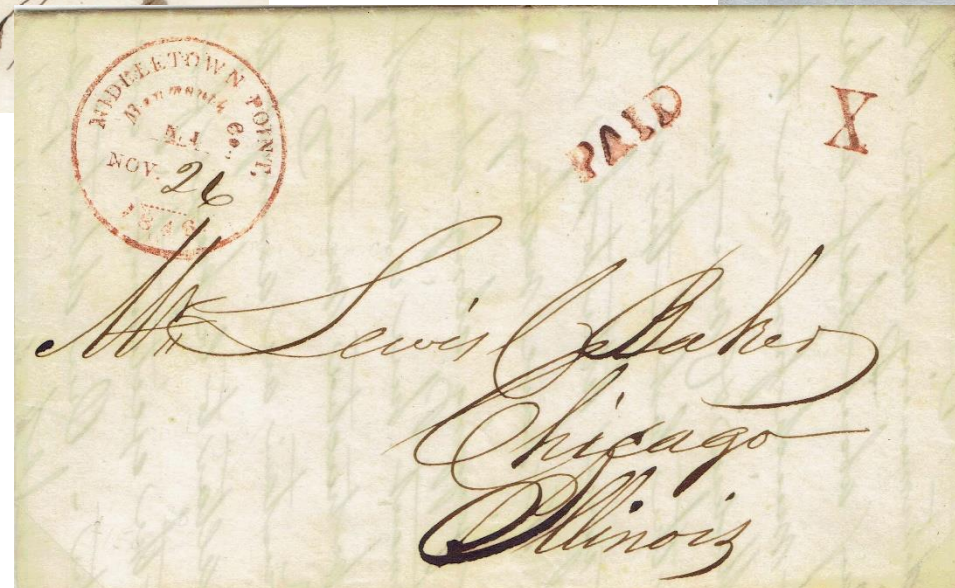 MIDDLETOWN POINT,
Monmouth Co.
N.J.
NOV. 26
1846
PAID
X
Mr Lewis C Baker
Chicago
Illinois